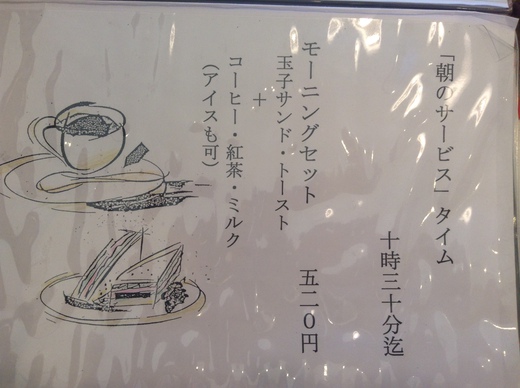 「朝のサービス」タイム
十時三十分迄
モーニングセット 五二〇円
玉子サンド・トースト
＋
コーヒー・紅茶・ミルク
（アイスも可）